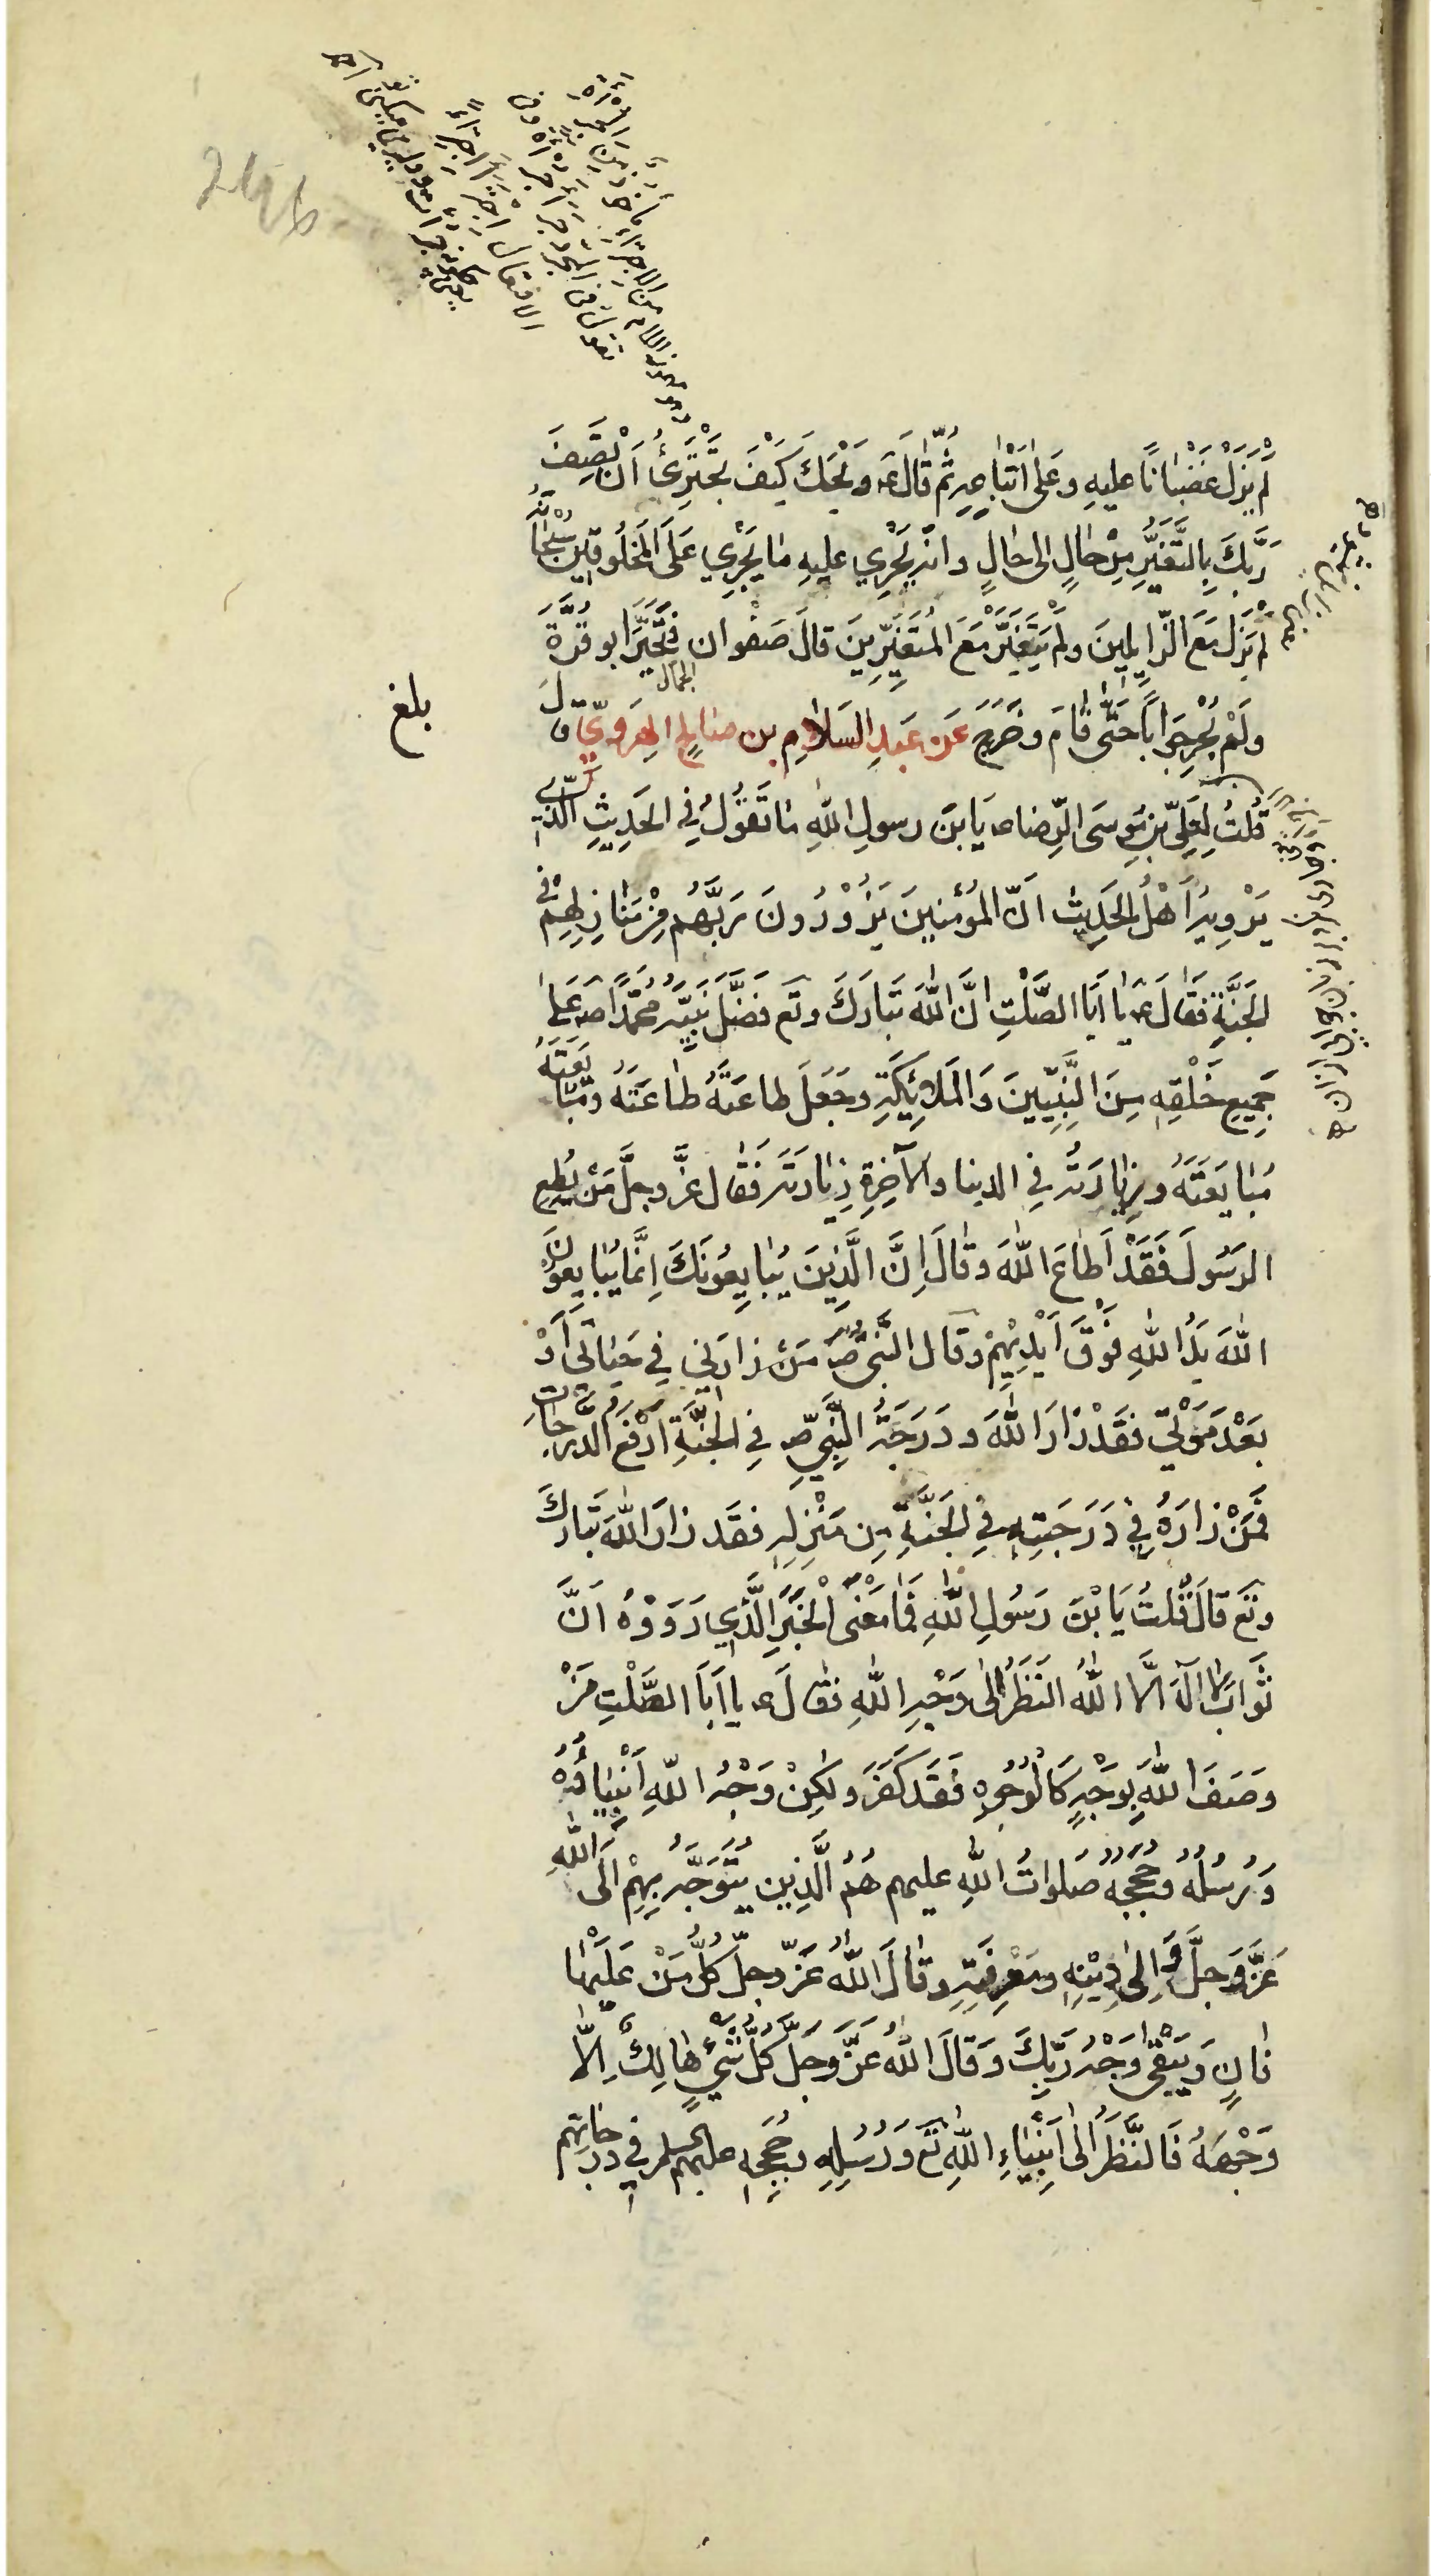 لَمْ يَزَلْ غَضْبَانًا عليهِ وعَلى اَتْبَاعِهِ ثُمَّ قَالَ ع وَيْحَكَ كَيْفَ تَجْتَرِئُ اَنْ تَصِفَ
رَبَّكَ بِالتَّغَيُّرِ مِنْ حَالٍ الى حَالٍ وانه يَجْرِي عليهِ مَا يَجْرِي عَلَى المَخْلُوقِينَ سُبْحَانَهُ
لَمْ يَزَل مَعَ الزَّايِلِينَ ولَمْ يَتَغَيَّر مَعَ المُتَغَيِّرِينَ قالَ صَفْوَان فَتَحَيَّرَ ابو قُرَّةَ
الجمال
ولَمْ يُحْرِ جَوَابًا حَتَّى قَامَ وخَرَجَ عَن عَبدِ السَلَامِ بن صَالِحِ الهِرَوِيِّ قالَ
بلغ
قُلتُ لِعَلِيِّ بنِ مُوسَى الرِّضا ع يَا بنَ رسولِ اللهِ مَا تَقُوْلُ فِي الحَدِيثِ الَّذِي
يَرْوِيهِ اَهْلُ الحَدِيثِ انَّ المُؤمِنِينَ يَزُوْرُونَ رَبَّهُم مِنْ مَنَازِلِهِمْ فِي
الجَنَّةِ فَقَالَ ع يا اَبَا الصَّلْتِ انَّ اللهَ تَبَارَكَ وتَع فَضَّلَ نَبِيَّهُ مُحَمَّدًا ص عَلَى
جَمِيعِ خَلْقِهِ مِنَ النَّبِيِّينَ وَالمَلَائِكَةِ وجَعَلَ طاعَتَهُ طَاعَتَهُ ومُبَايَعَتَهُ
مُبَايَعَتَهُ وزِيَارَتَهُ فِي الدينا والآخِرَةِ زِيَارَتَهُ فَقَال عَزَّ وجلَّ مَن يُطِعِ
الرَسُولَ فَقَدْ اَطَاعَ اللهَ وقَالَ اِنَّ الَّذِينَ يُبَايِعُونَكَ اِنَّمَا يُبَايِعُونَ
اللهَ يَدُ اللهِ فَوْقَ اَيْدِيْهِمْ وقال النَّبِيُّ ص مَن زارَنِي فِي حَيَاتِي اَوْ
بَعْدَ مَوْتِي فقَدْ زَارَ اللهَ ودَرَجَةُ النَّبِيِّ ص فِي الجَنَّةِ اَرْفَعُ الدَّرَجَاتِ
فَمَنْ زارَهُ فِي دَرَجَتِهِ فِي الجَنَّةِ مِن مَنْزِلِهِ فقَد زارَ اللهَ تَبَارَكَ
وتَع قالَ قُلتُ يَا بْنَ رَسُولِ اللهِ فَمَا مَعْنَى الْخَبَرِ الَّذِي رَوَوْهُ اَنَّ
ثَوَابَ لا الَهَ الَّا اللهُ النَظَرُ اِلى وَجْهِ اللهِ فقَالَ ع يا اَبَا الصَّلْتِ مَنْ
وَصَفَ اللهَ بِوَجْهٍ كَالْوُجُوهِ فَقَد كَفَرَ ولَكِنْ وَجْهُ اللهِ اَنْبِيَاؤُهُ
وَرُسُلُهُ وحُجَجُهُ صَلواتُ اللهِ عليهم هُمُ الَّذِين يُتَوَجَّهُ بِهِمْ اِلَى اللهِ
عَزَّ وَجلَّ وَ اِلى دِيْنِهِ ومَعْرِفَتِهِ وقَالَ اللهُ عَزّ وجلّ كُلُّ مَنْ عَلَيْهَا
فَانٍ وَيَبْقَى وَجْهُ رَبِّكَ وَقالَ اللهُ عَزَّ وجَلَّ كُلُّ شَيْءٍ هَالِكٌ اِلَّا
وَجْهَهُ فَالنَّظَرُ الى اَنْبِيَاءِ اللهِ تَع وَرُسُلِهِ وحُجَجِهِ عليهم السلم فِي دَرَجَاتِهِم